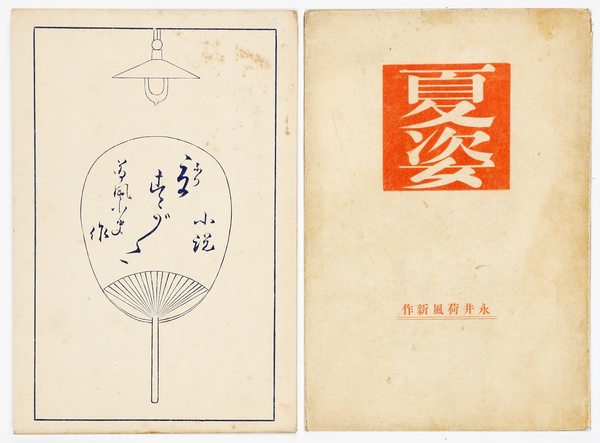 小説
夏すがた
荷風小史
作
夏姿
永井荷風新作